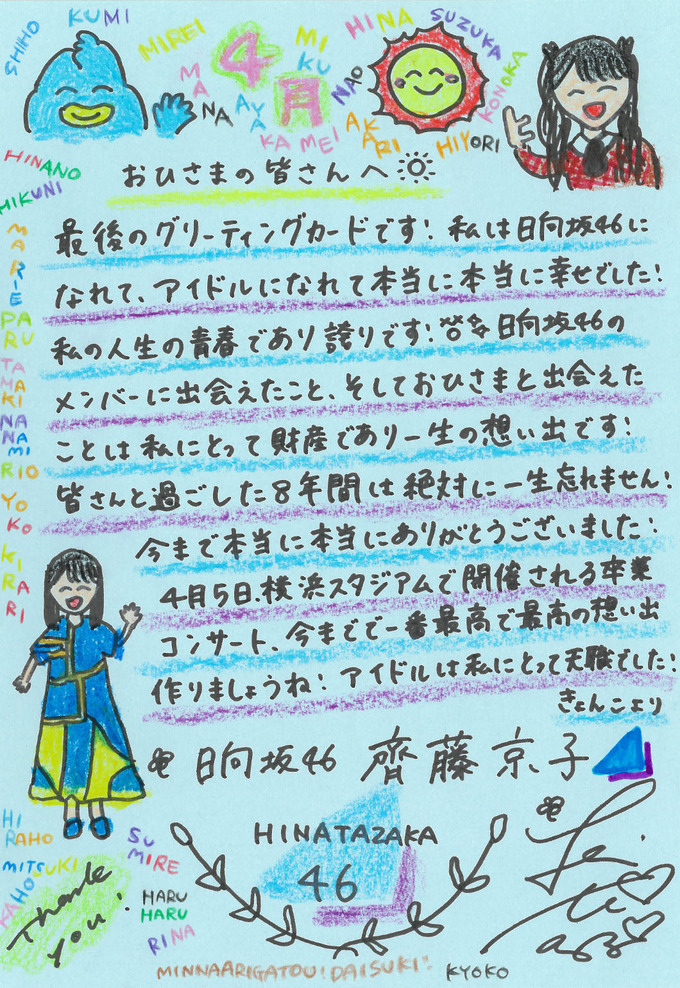 SHIHO
KUMI
MIREI
4月
MIKU
HINA
SUZUKA
MANA
AYAKA
NAO
MEI
AKARI
HIYORI
KONOKA
HINANO
MIKUNI
MARIE
PARU
TAMAKI
NANAMI
RIO
YOKO
KIRARI
おひさまの皆さんへ
最後のグリーティングカードです! 私は日向坂46に
なれて、アイドルになれて本当に本当に幸せでした!
私の人生の青春であり誇りです! 日向坂46の
メンバーに出会えたこと、そしておひさまと出会えた
ことは私にとって財産であり一生の想い出です!
皆さんと過ごした8年間は絶対に一生忘れません!
今まで本当に本当にありがとうございました!
4月5日、横浜スタジアムで開催される卒業
コンサート、今までで一番最高で最高の想い出
作りましょうね! アイドルは私にとって天職でした!
きょんこより
日向坂46 齊藤京子
HIRAHO
MITSUKI
KAHO
SUMIRE
HARU
HARU
RINA
Thank
you!
HINATAZAKA
46
MINNAARIGATOU!DAISUKI!
KYOKO